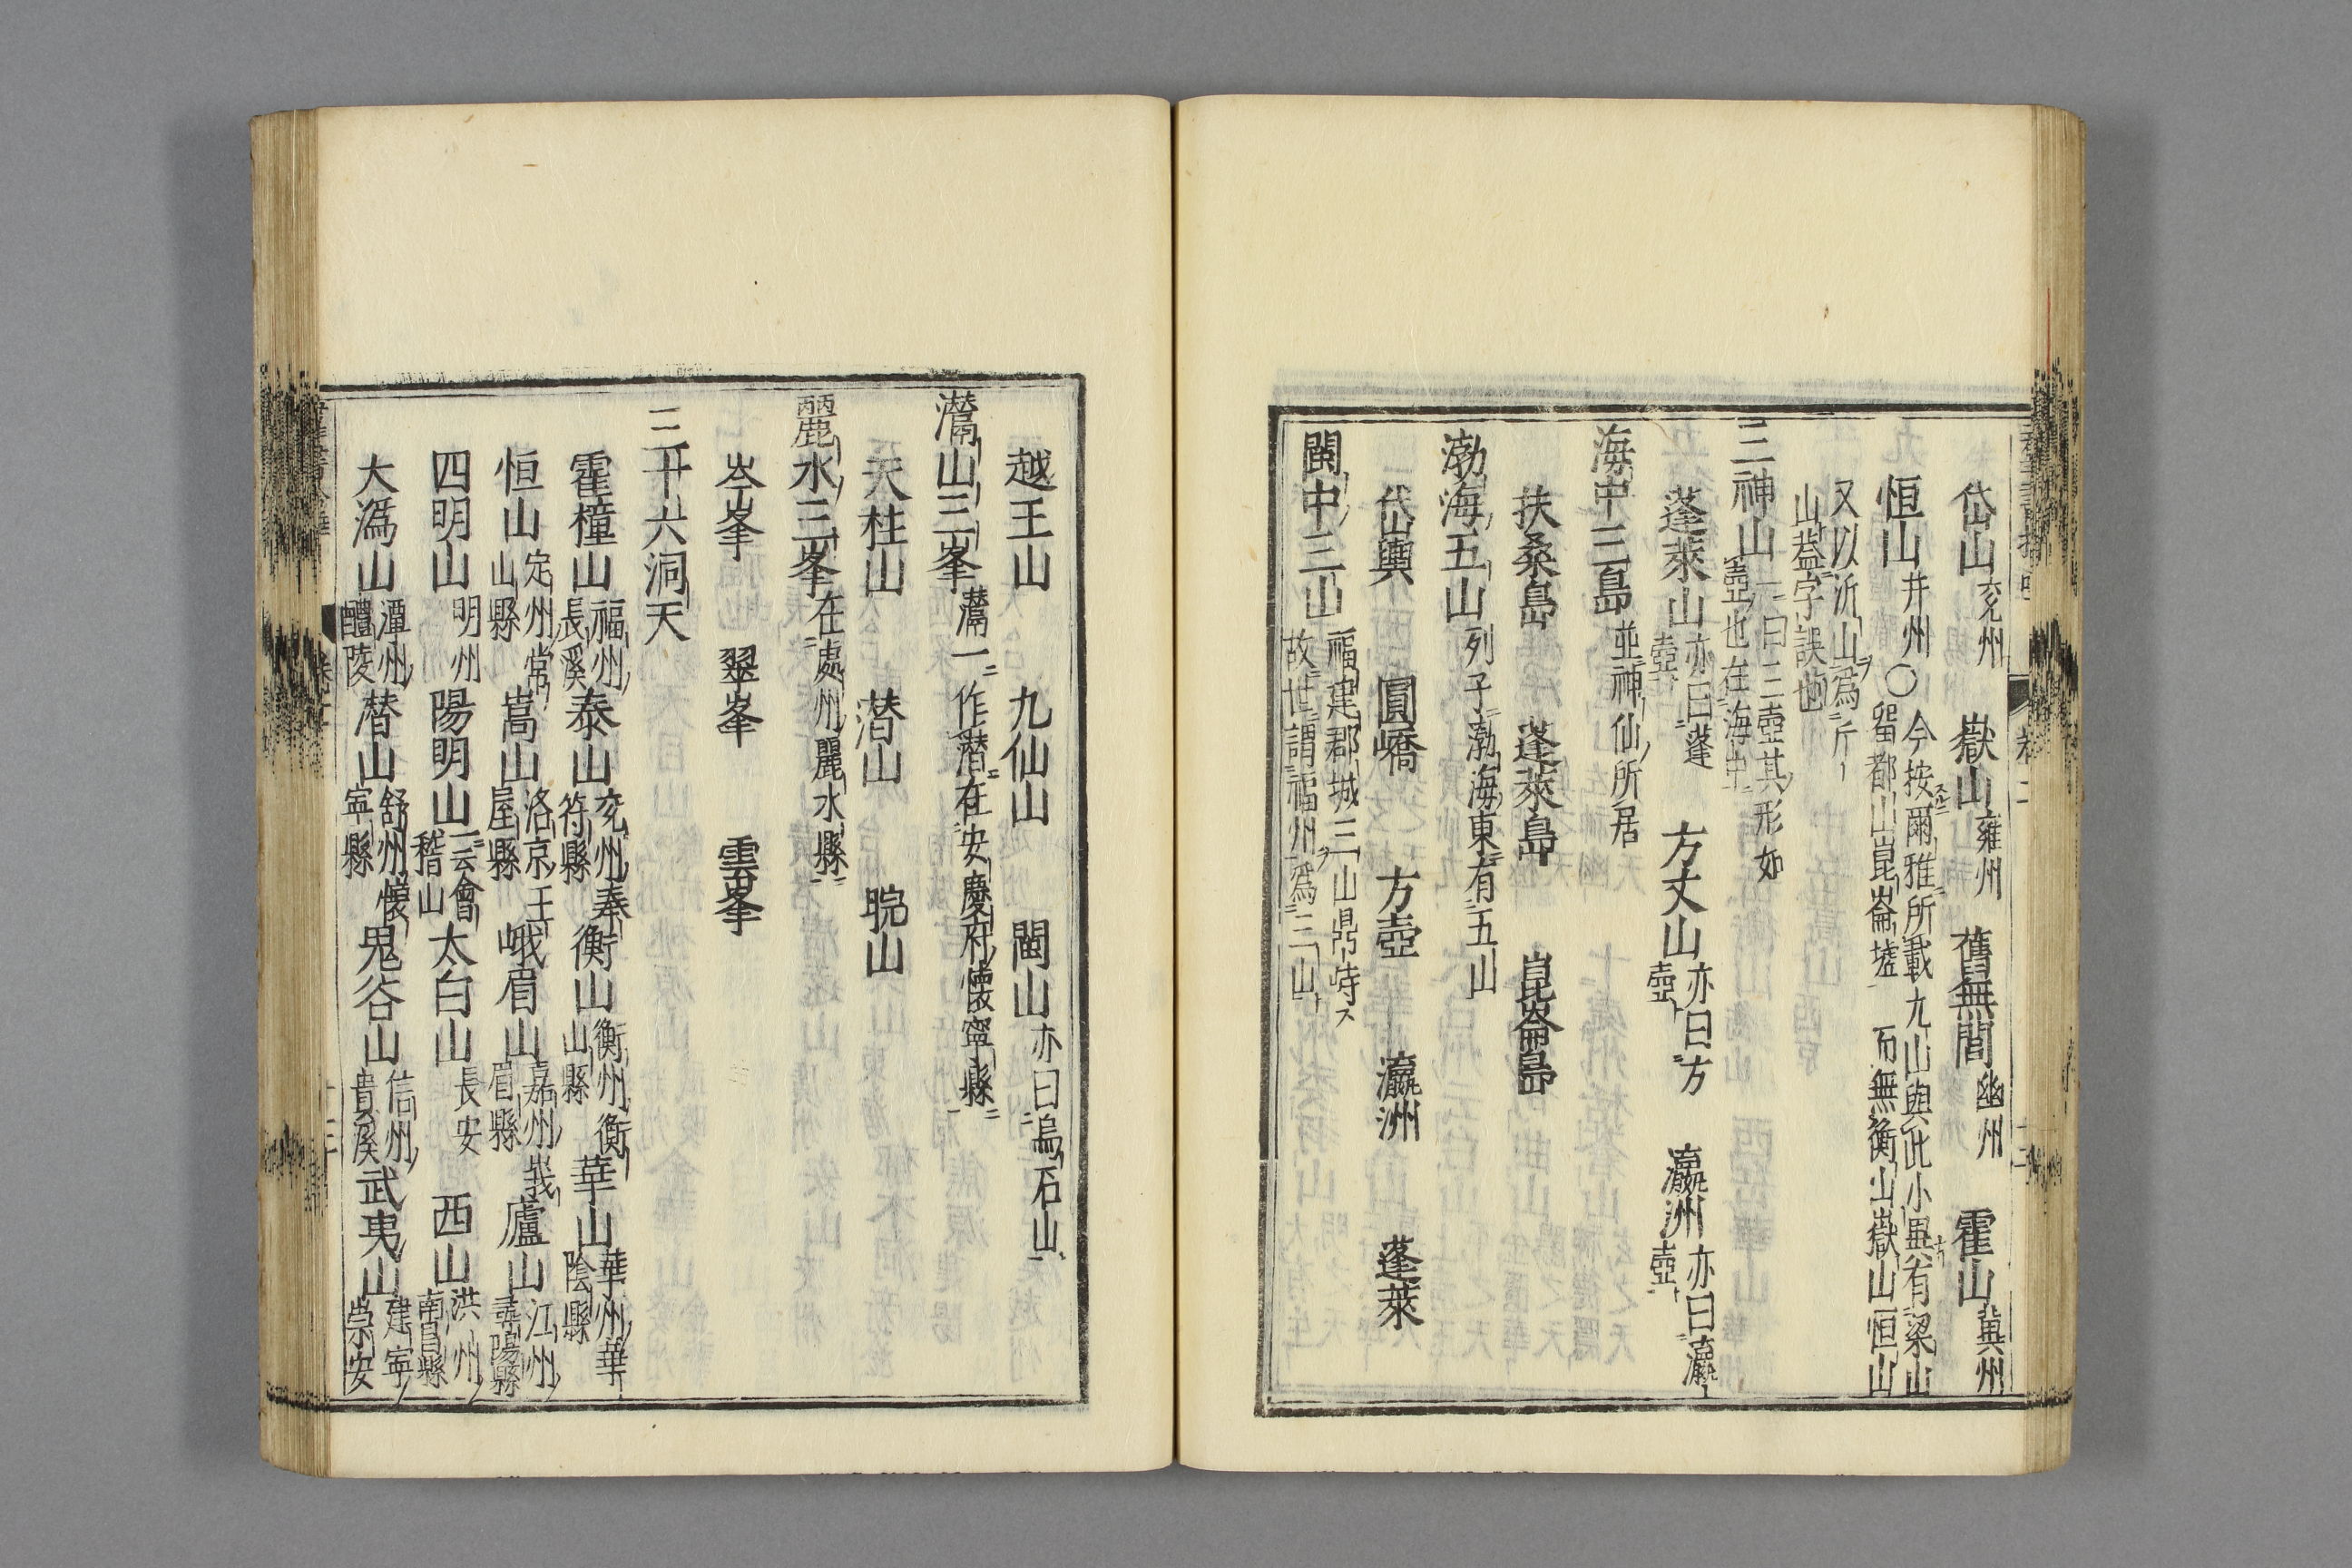 岱山兖州 嶽山雍州 舊無閭幽州 霍山冀州
恒山并州〇今按爾雅所載九山與此小異有梁山
畱都山崑崙墟 而無衡山嶽山恒山
又以沂山為斤
山蓋字誤也
三神山一曰三壺其形如
壺也在海中
蓬萊山亦曰蓬壺 方丈山亦曰方壺 瀛洲亦曰瀛壺
海中三島並神仙所居
扶桑島 蓬萊島 崑崙島
渤海五山列子渤海東有五山
岱輿 圓嶠 方壺 瀛洲 蓬萊
閩中三山福建郡城三山鼎峙
故世謂福州為三山
越王山 九仙山 閩山亦曰烏石山
灊山三峯灊一作潜在安慶府懐寧縣
天柱山 潜山 晥山
麗水三峯在處州麗水縣
岑峯 翠峯 雲峯
三十六洞天
霍橦山福州長溪 泰山兖州奉符縣 衡山衡州衡山縣 華山華州華陰縣
恒山定州常山縣 嵩山洛京王屋縣 峨眉山嘉州峩眉縣 廬山江州尋陽縣
四明山明州 陽明山一云會稽山 太白山長安 西山洪州南昌縣
大溈山潭州醴陵 潜山舒州懐寧縣 鬼谷山信州貴溪 武夷山建寧崇安